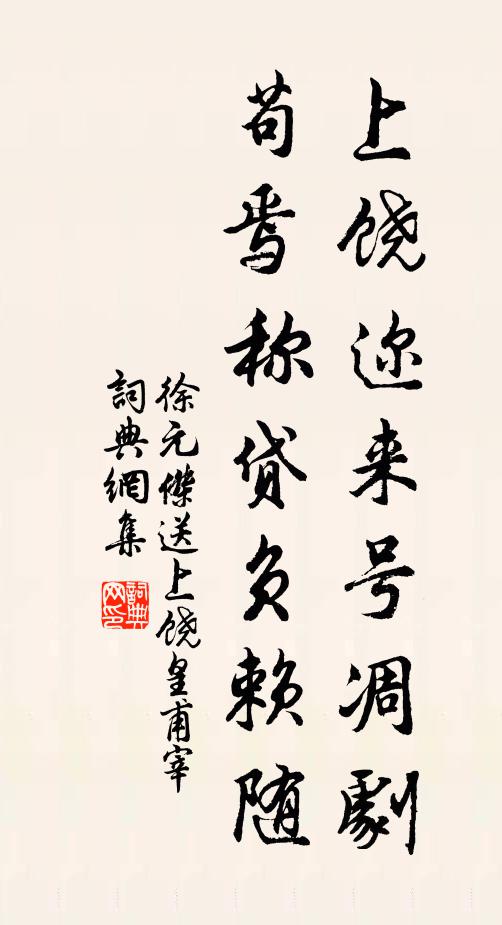 上饶迩来号凋劇
苟焉称贷负赖随
徐元傑送上饶皇甫宰
詞典網集
詞典网印